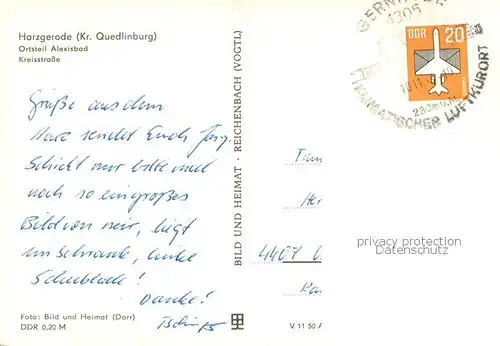 Harzgerode (Kr. Quedlinburg)
Ortsteil Alexisbad
Kreisstraße
Grüße aus dem
Harz sendet Euch Jörg.
Schickt mir bitte mal
noch so ein großes
Bild von mir, liegt
im Schrank, linke
Schublade!
Danke!
Foto: Bild und Heimat (Darr)
DDR 0,20 M
BILD UND HEIMAT · REICHENBACH (VOGTL)
V 11 50 A
4305
DDR 20
KLIMATISCHER LUFTKURORT
Fam
Her
4407
privacy protection
Datenschutz